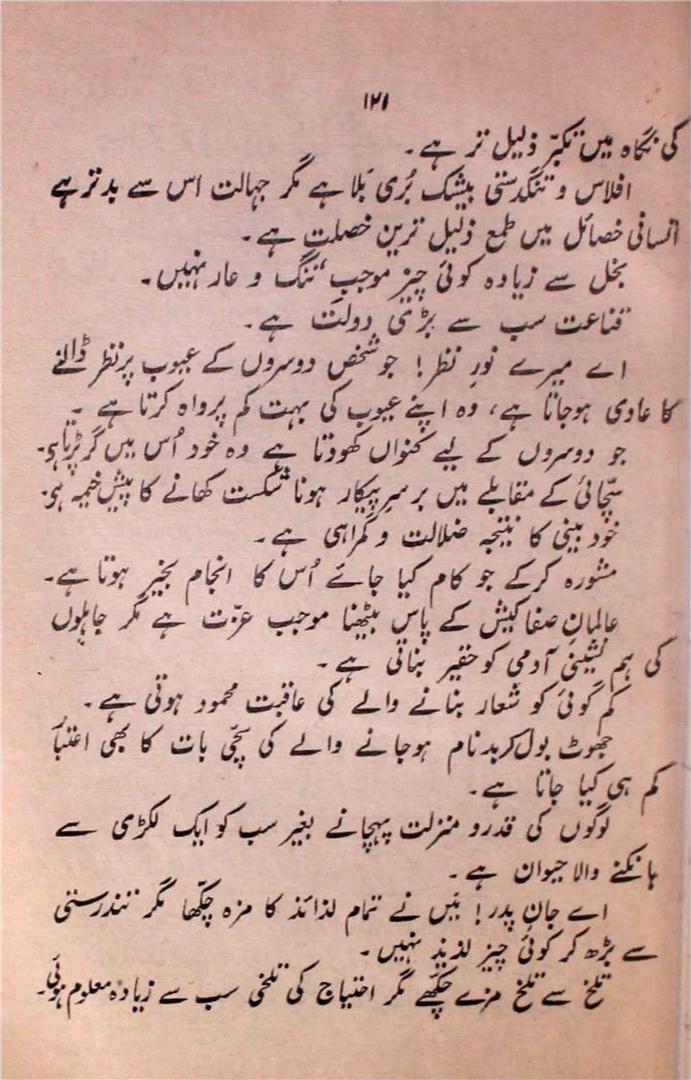 ۱۲۱
کی نگاہ میں تکبّر ذلیل تر ہے۔
افلاس و تنگدستی بیشک بُری بَلا ہے مگر جہالت اس سے بدتر ہے
انسانی خصائل میں طمع ذلیل ترین خصلت ہے۔
بخل سے زیادہ کوئی چیز موجب ننگ و عار نہیں۔
قناعت سب سے بڑی دولت ہے۔
اے میرے نورِ نظر! جو شخص دوسروں کے عیوب پر نظر ڈالنے
کا عادی ہو جاتا ہے، وہ اپنے عیوب کی بہت کم پرواہ کرتا ہے۔
جو دوسروں کے لیے کنواں کھودتا ہے وہ خود اُس میں گر پڑتا ہی۔
سچّائی کے مقابلے میں برسرِ پیکار ہونا شکست کھانے کا پیش خیمہ ہی۔
خود بینی کا نتیجہ ضلالت و گمراہی ہے۔
مشورہ کرکے جو کام کیا جائے اُس کا انجام بخیر ہوتا ہے۔
عالمانِ صفا کیش کے پاس بیٹھنا موجب عزّت ہے مگر جاہلوں
کی ہم نشینی آدمی کو حقیر بناتی ہے۔
کم گوئی کو شعار بنانے والے کی عاقبت محمود ہوتی ہے۔
جھوٹ بول کر بدنام ہو جانے والے کی سچّی بات کا بھی اعتبار
کم ہی کیا جاتا ہے۔
لوگوں کی قدر و منزلت پہچانے بغیر سب کو ایک لکڑی سے
ہانکنے والا حیوان ہے۔
اے جانِ پدر! میں نے تمام لذائذ کا مزہ چکّھا مگر تندرستی
سے بڑھ کر کوئی چیز لذیذ نہیں۔
تلخ سے تلخ مزے چکّھے مگر احتیاج کی تلخی سب سے زیادہ معلوم ہوئی۔